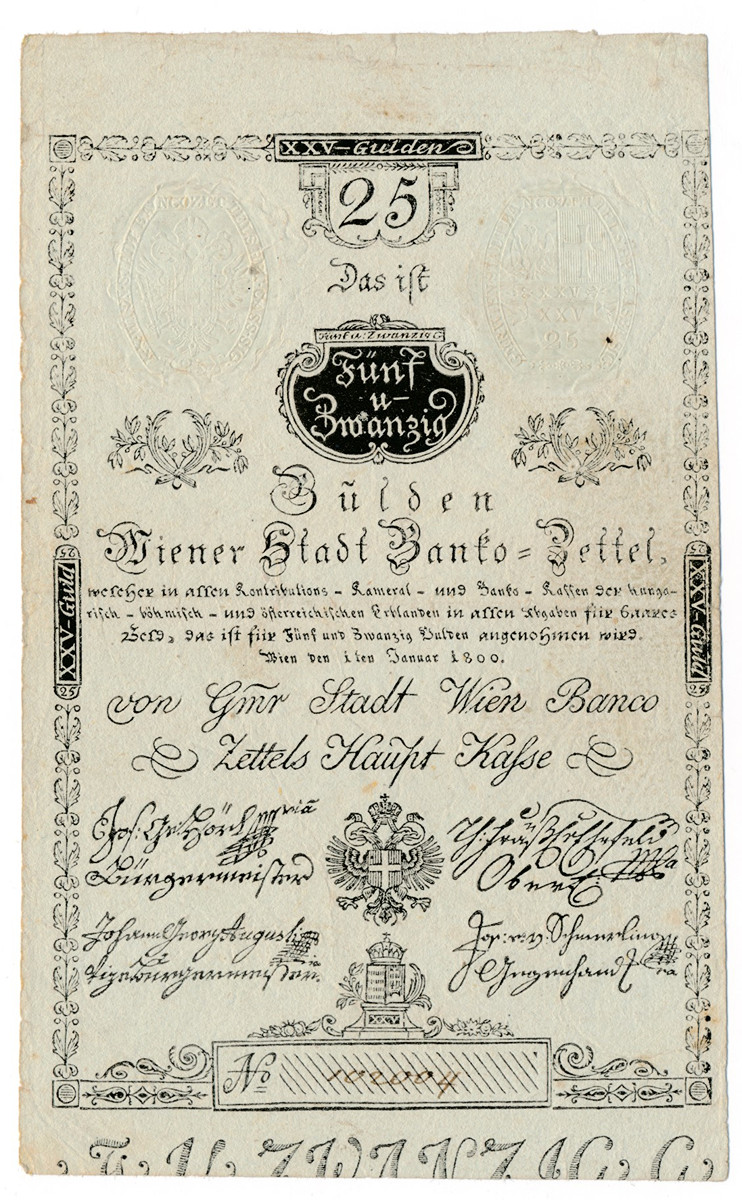 XXV-Gulden
25
Das ist
Fünf u: Zwanzig G
Fünf
u-
Zwanzig
Gulden
Wiener Stadt Banko=Zettel,
welcher in allen Kontributions-Kameral-und Banko-Kassen der hunga-
risch-böhmisch-und österreichischen Erblanden in allen Abgaben für baares
Geld, das ist für Fünf und Zwanzig Gulden angenohmen wird.
Wien den 1ten Januar 1800.
25
XXV-Guld
25
25
XXV-Guld
25
von Gm̄r Stadt Wien Banco
Zettels Haupt Kasse
Bürgermeister
Johann Georg Augusti
Vizebürgermeister.
XXV
No 102004
F U ZWANZIG G